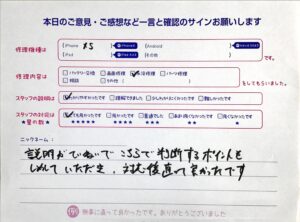 本日のご意見・ご感想など一言と確認のサインお願いします
修理機種は
iPhone XS
iPad
Android
その他
修理内容は
バッテリー交換 画面修理 水没修理 パーツ修理
相談 その他
をしてもらいました。
スタッフの説明は
わかりやすかったです 理解できました 少しわかりにくかったです 難しかったです
スタッフの対応は
★星の数★
とても良かったです 良かったです 普通でした
★★★★★ ★★★★ ★★★ ★★ ★
ニックネーム:
説明がていねいで こちらで判断するポイントも
しめしていただき、対応後直って良かったです
無事に直って良かったです。ありがとうございました。